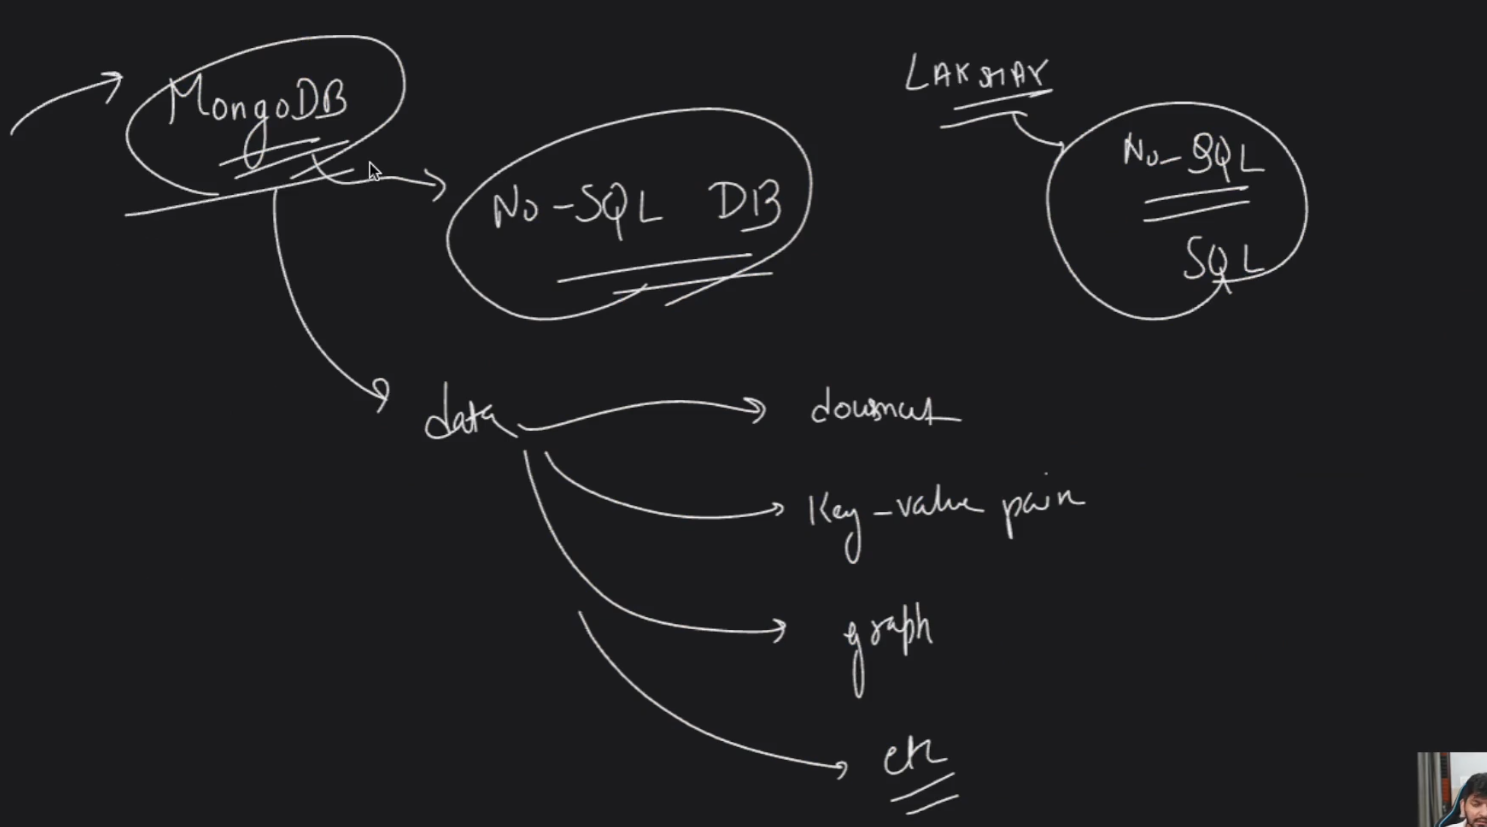 MongoDB
No-SQL DB
LAKSHAY
No-SQL
SQL
data
document
Key-value pair
graph
etc